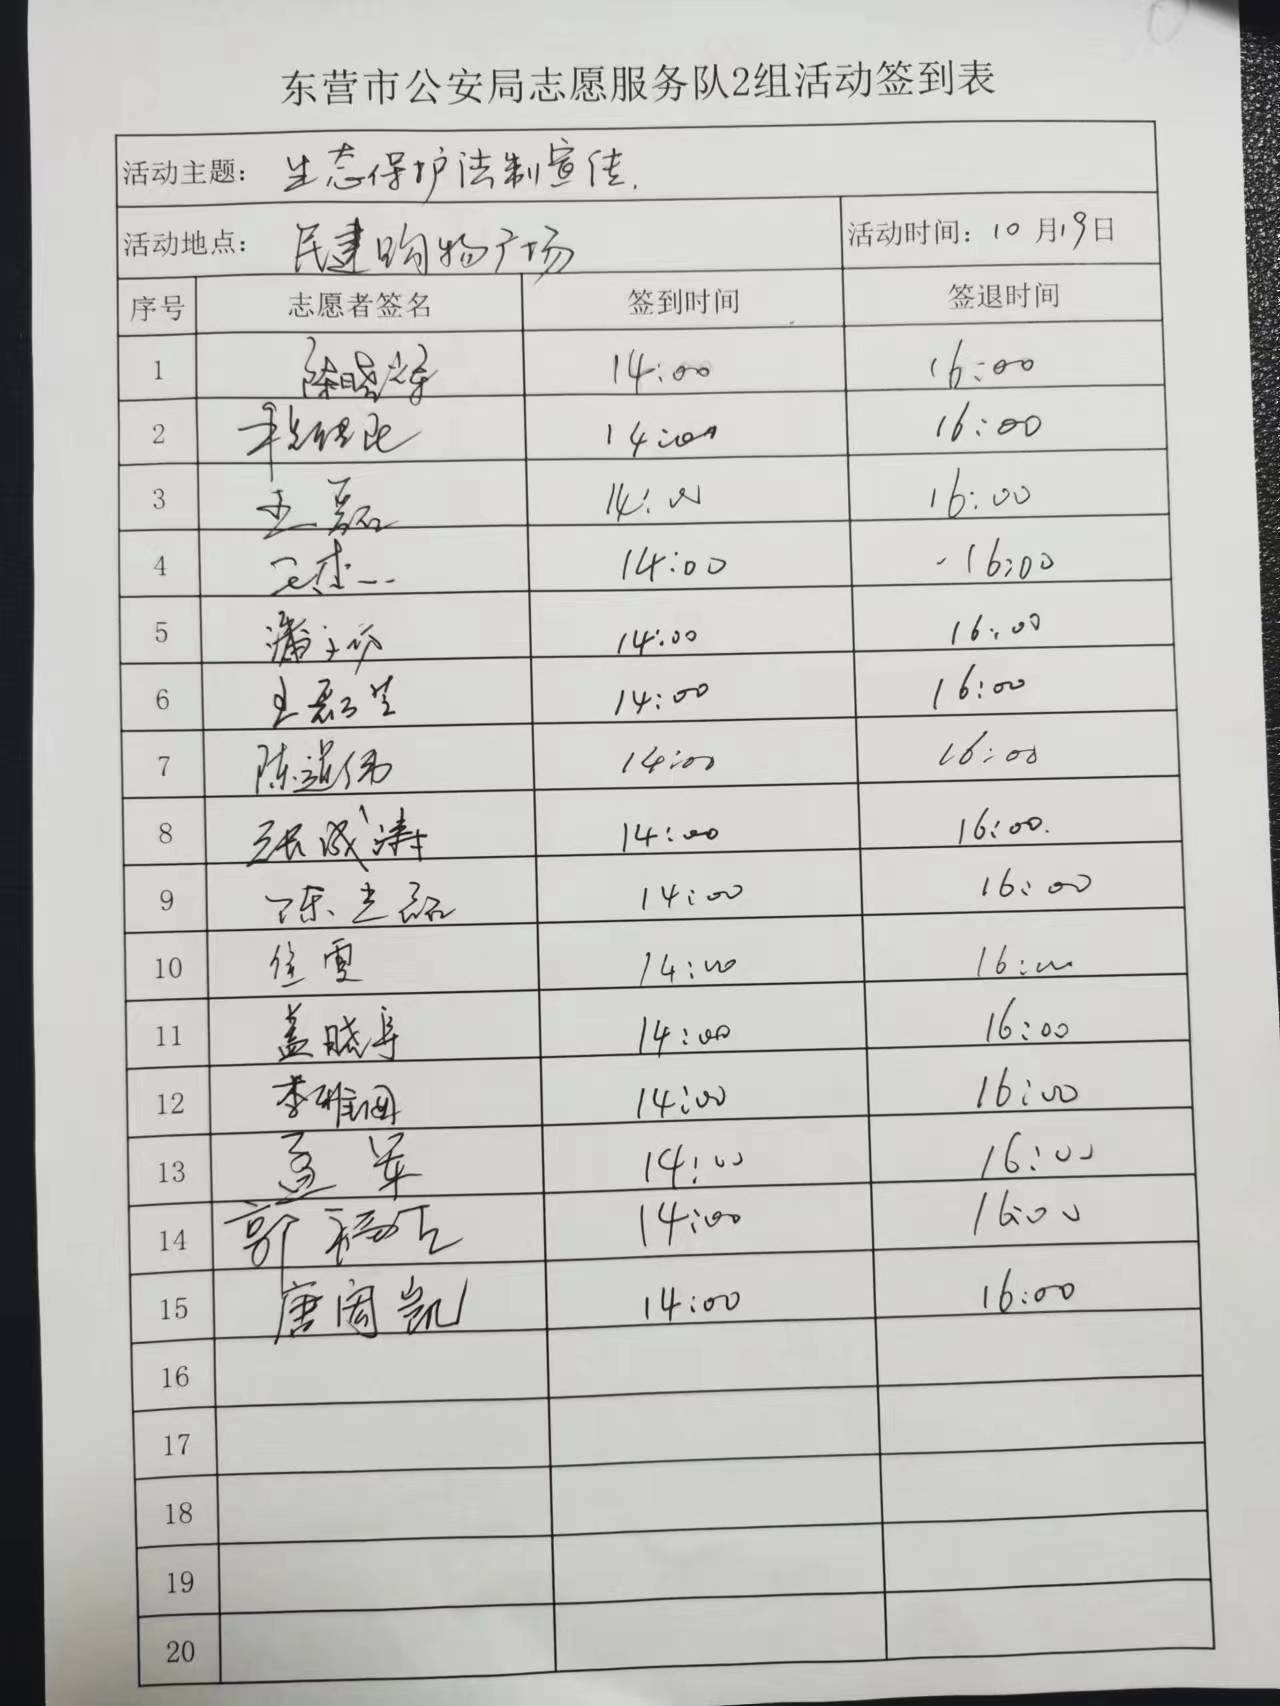 东营市公安局志愿服务队2组活动签到表
活动主题：生态保护法制宣传.
活动地点：民建购物广场 活动时间：10月19日
序号 志愿者签名 签到时间 签退时间
1 陈晓 14:00 16:00
2 14:00 16:00
3 王磊 14:00 16:00
4 14:00 16:00
5 14:00 16:00
6 王磊 14:00 16:00
7 陈道伟 14:00 16:00
8 张成涛 14:00 16:00.
9 陈志磊 14:00 16:00
10 任雪 14:00 16:00
11 盖晓 14:00 16:00
12 李雅 14:00 16:00
13 孟军 14:00 16:00
14 郭福 14:00 16:00
15 唐国凯 14:00 16:00
16
17
18
19
20